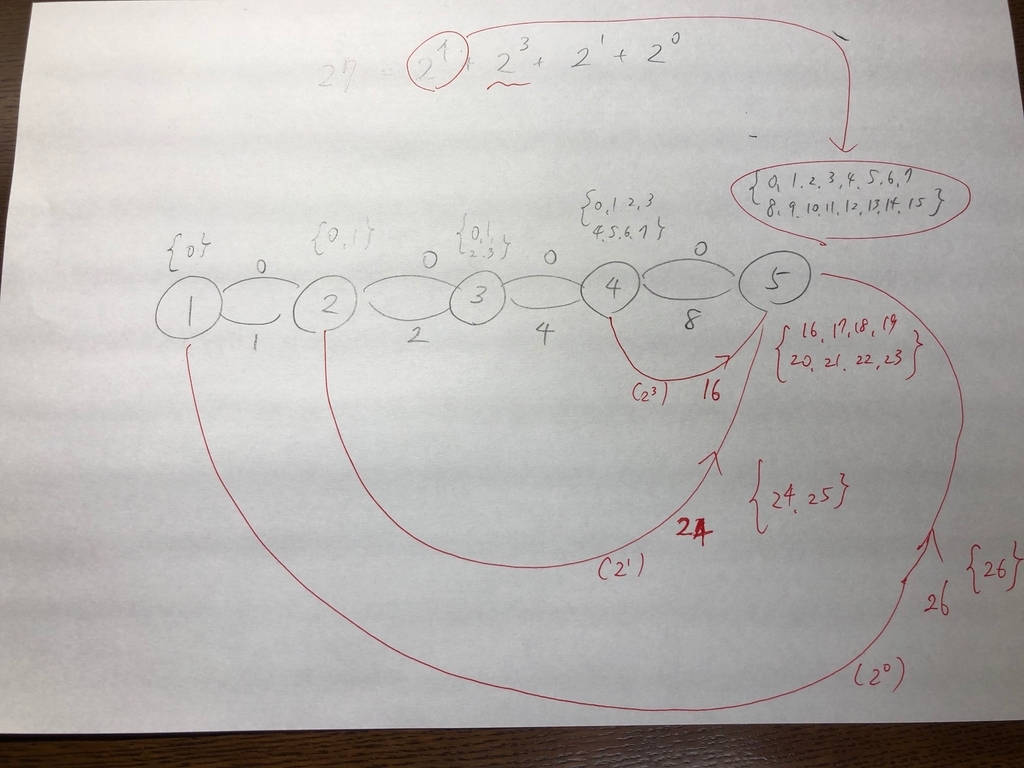 27 = 2⁴ + 2³ + 2¹ + 2⁰
{0, 1, 2, 3, 4, 5, 6, 7
8, 9, 10, 11, 12, 13, 14, 15}
{0, 1, 2, 3
4, 5, 6, 7}
{0, 1,
2, 3}
{0, 1}
{0}
0 0 0 0
1 2 3 4 5
1 2 4 8
{16, 17, 18, 19
20, 21, 22, 23}
(2³) 16
{24, 25}
24
(2¹)
{26}
26
(2⁰)